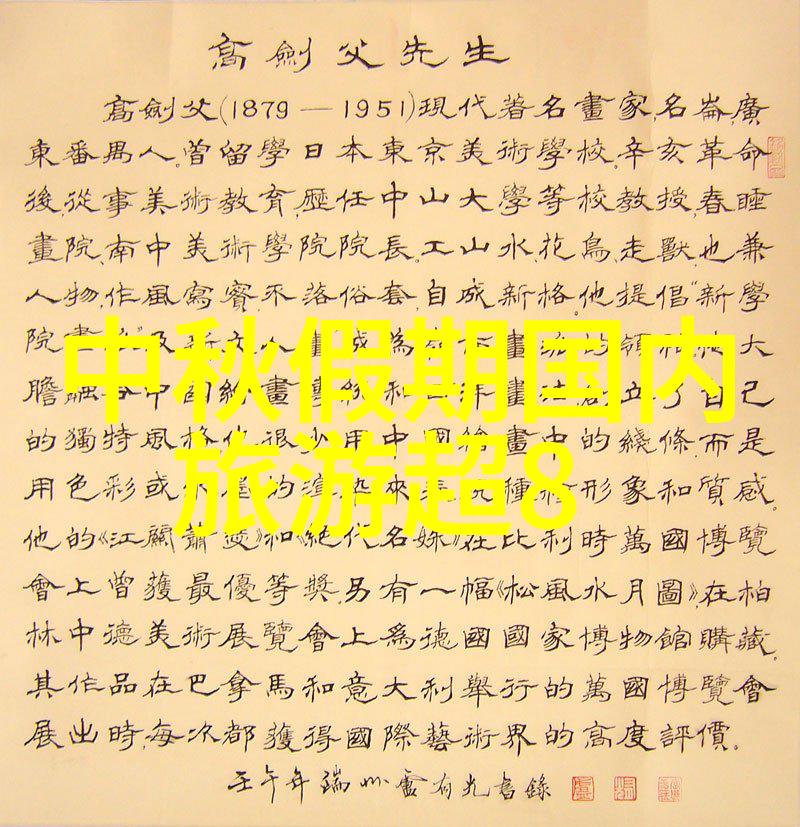 高劍父先生
高劍父(1879—1951)現代著名畫家,名崙,廣
東番禺人。曾留學日本東京美術學校,辛亥革命
後,從事美術教育,歷任中山大學等校教授,春睡
畫院、南中美術學院院長。工山水、花鳥、走獸,也兼
人物,作風寫實,不落俗套,自成新格。他提倡“新學
院
中秋假期国内
膽
的獨特風格他很少用中國繪畫中的綫條,而是
旅游超8
用色彩或
形象和質感。
他的《江關蕭瑟》和《絕代名姝》在比利時萬國博覽
會上曾獲最優等獎,另有一幅《松風水月圖》,在柏
林中德美術展覽會上為德國國家博物館購藏。
其作品在巴拿馬和意大利舉行的萬國博覽會
展出時,每次都獲得國際藝術界的高度評價。
壬午年瑞州盧有光書錄